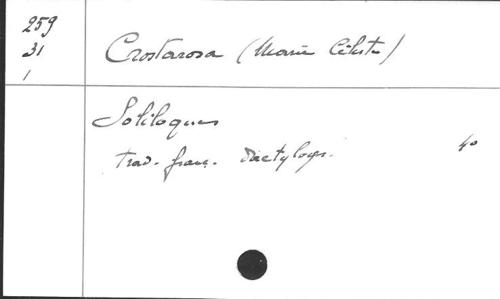 259
31
1
Crostarosa (Marie Céleste)
Soliloques
trad. franç. Dactylogr. 4°